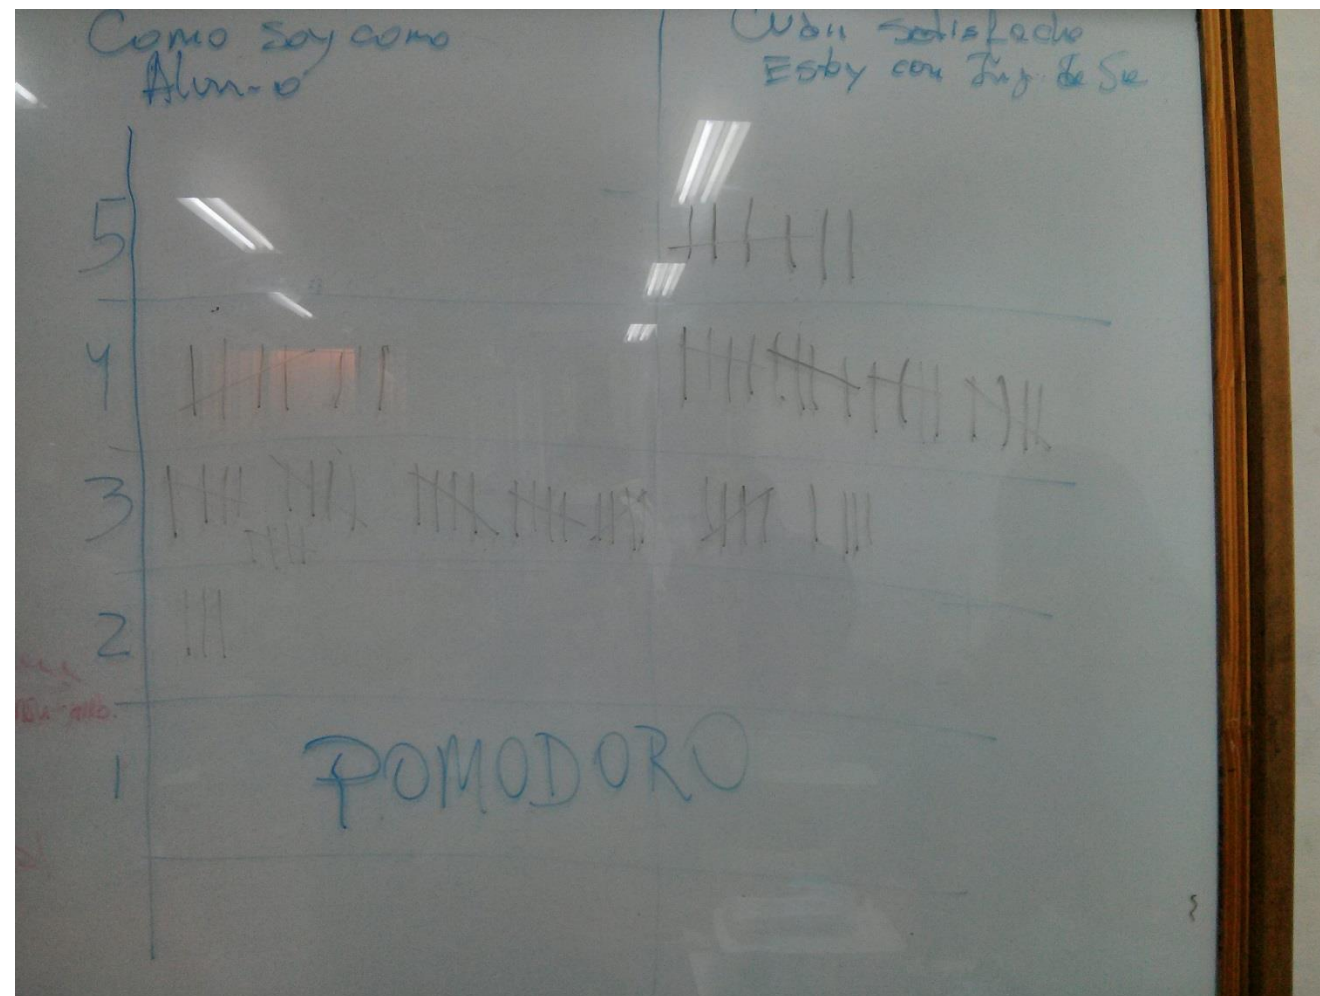 Como soy como
Alumno
Cuan satisfecho
Estoy con Ing. de Sw
5
4
3
2
1
POMODORO